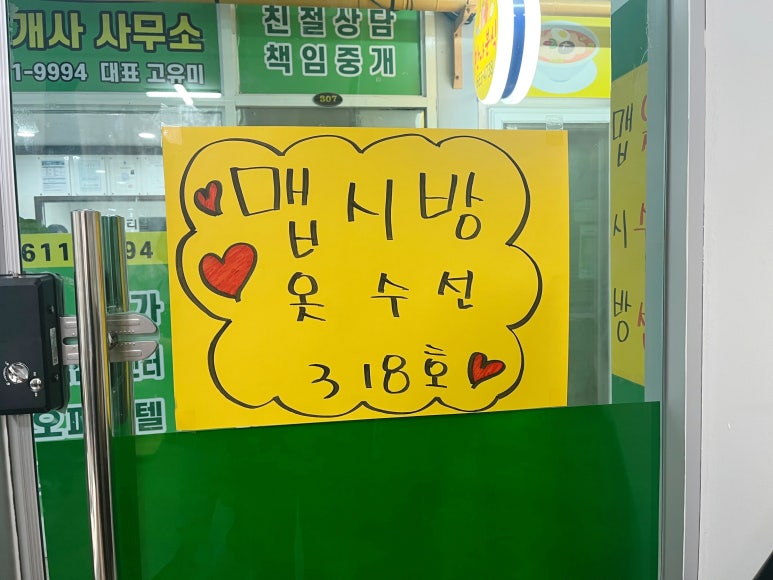 개사 사무소
1-9994 대표 고유미
친절상담
책임중개
307
맵시방
옷수선
318호
611
94
가
터
텔
맵
시
방